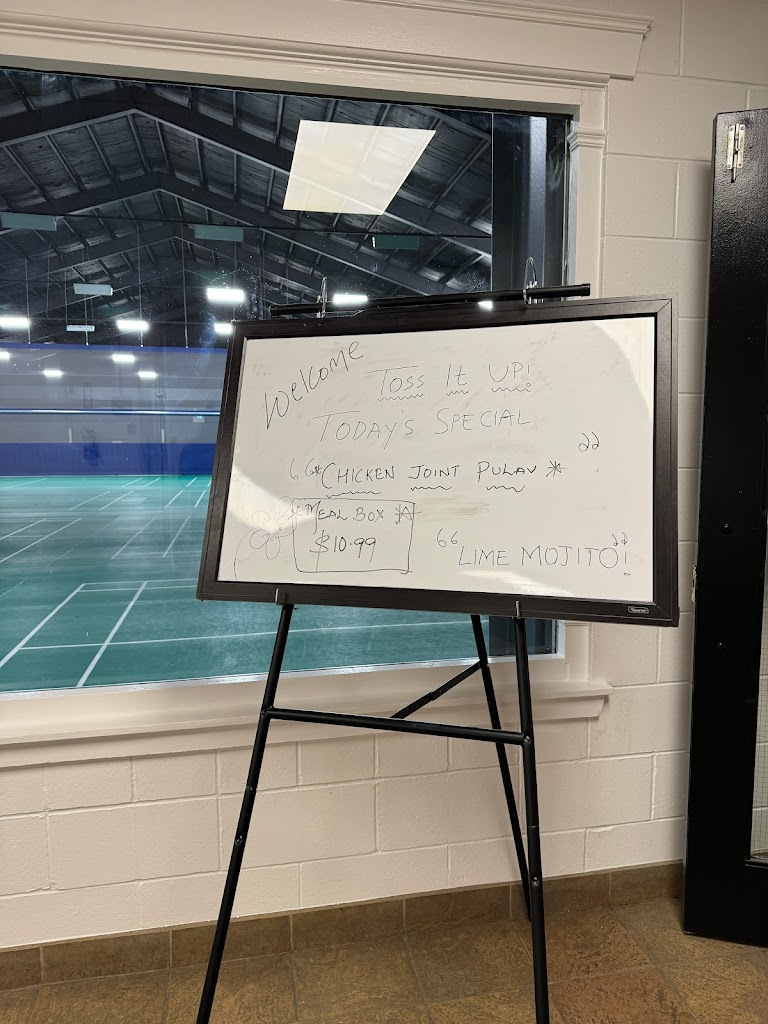 Welcome
Toss It UP!
TODAY'S SPECIAL
"*CHICKEN JOINT PULAV *"
*MEAL BOX *
$10.99
"LIME MOJITO!"